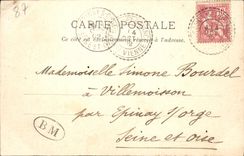 87
CARTE POSTALE
Ce côté est exclusivement réservé à l'adresse.
VIENNE
Mademoiselle Simone Bourdel
à Villemoisson
par Epinay s/orge
Seine et oise
BM